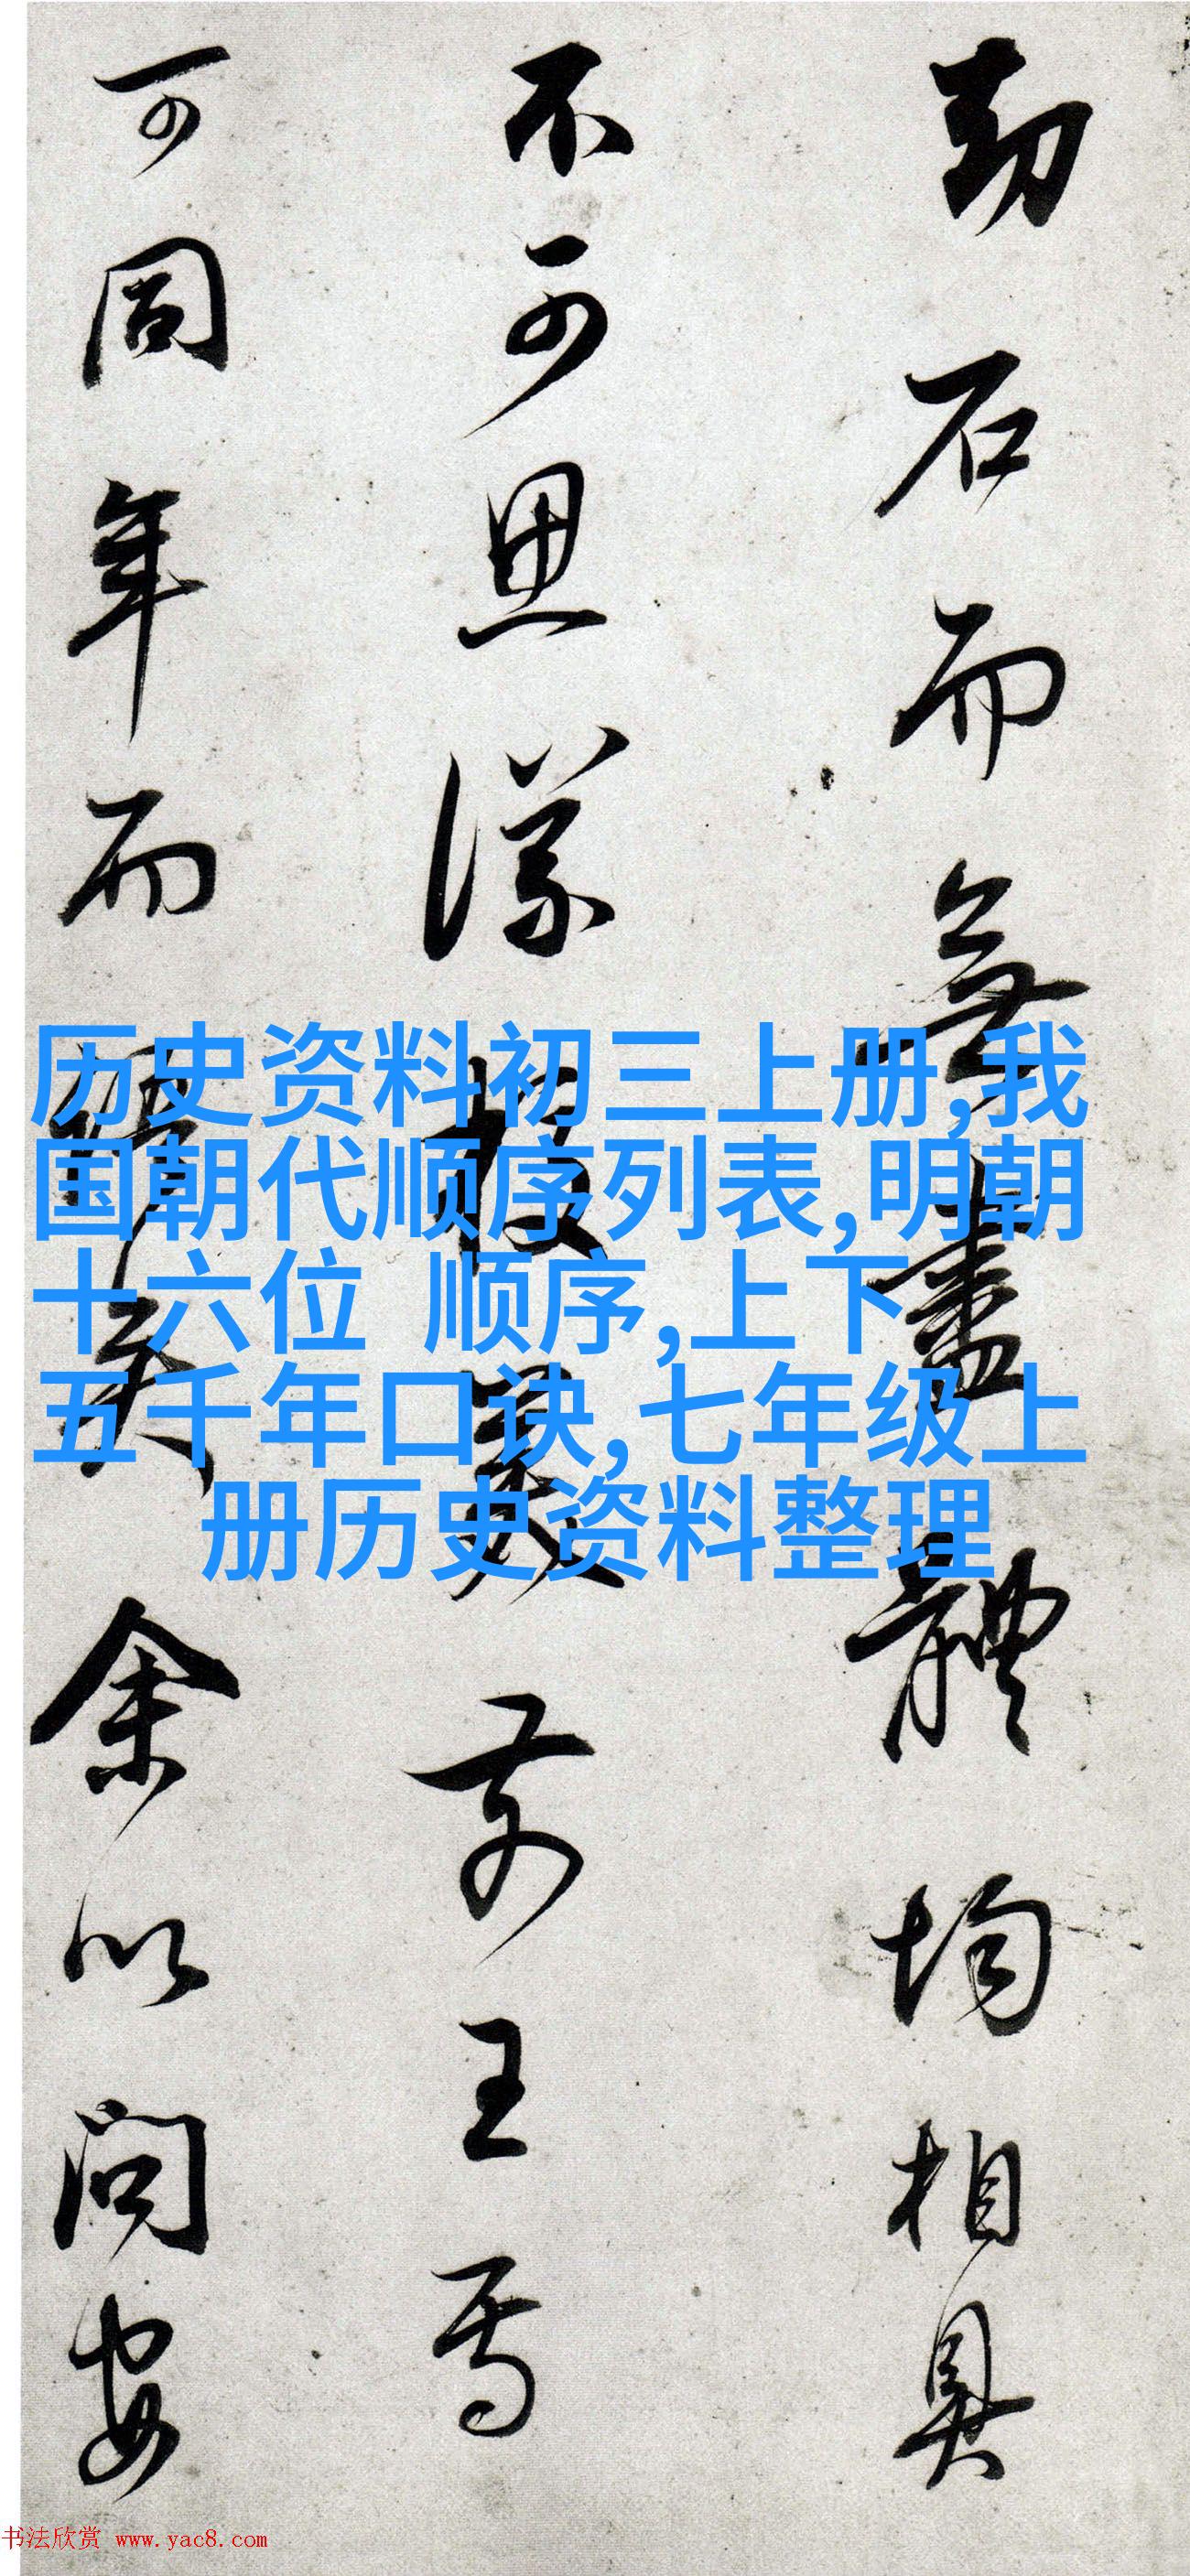 劫石而無盡體均相具
不可思議掞案前王焉
可同年而語矣余以問安
历史资料初三上册,我
国朝代顺序列表,明朝
十六位 顺序,上下
五千年口诀,七年级上
册历史资料整理
书法欣赏 www.yac8.com